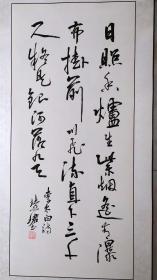 日照香爐生紫烟遙看瀑
布掛前川飛流直下三千
尺疑是銀河落九天
李太白詩